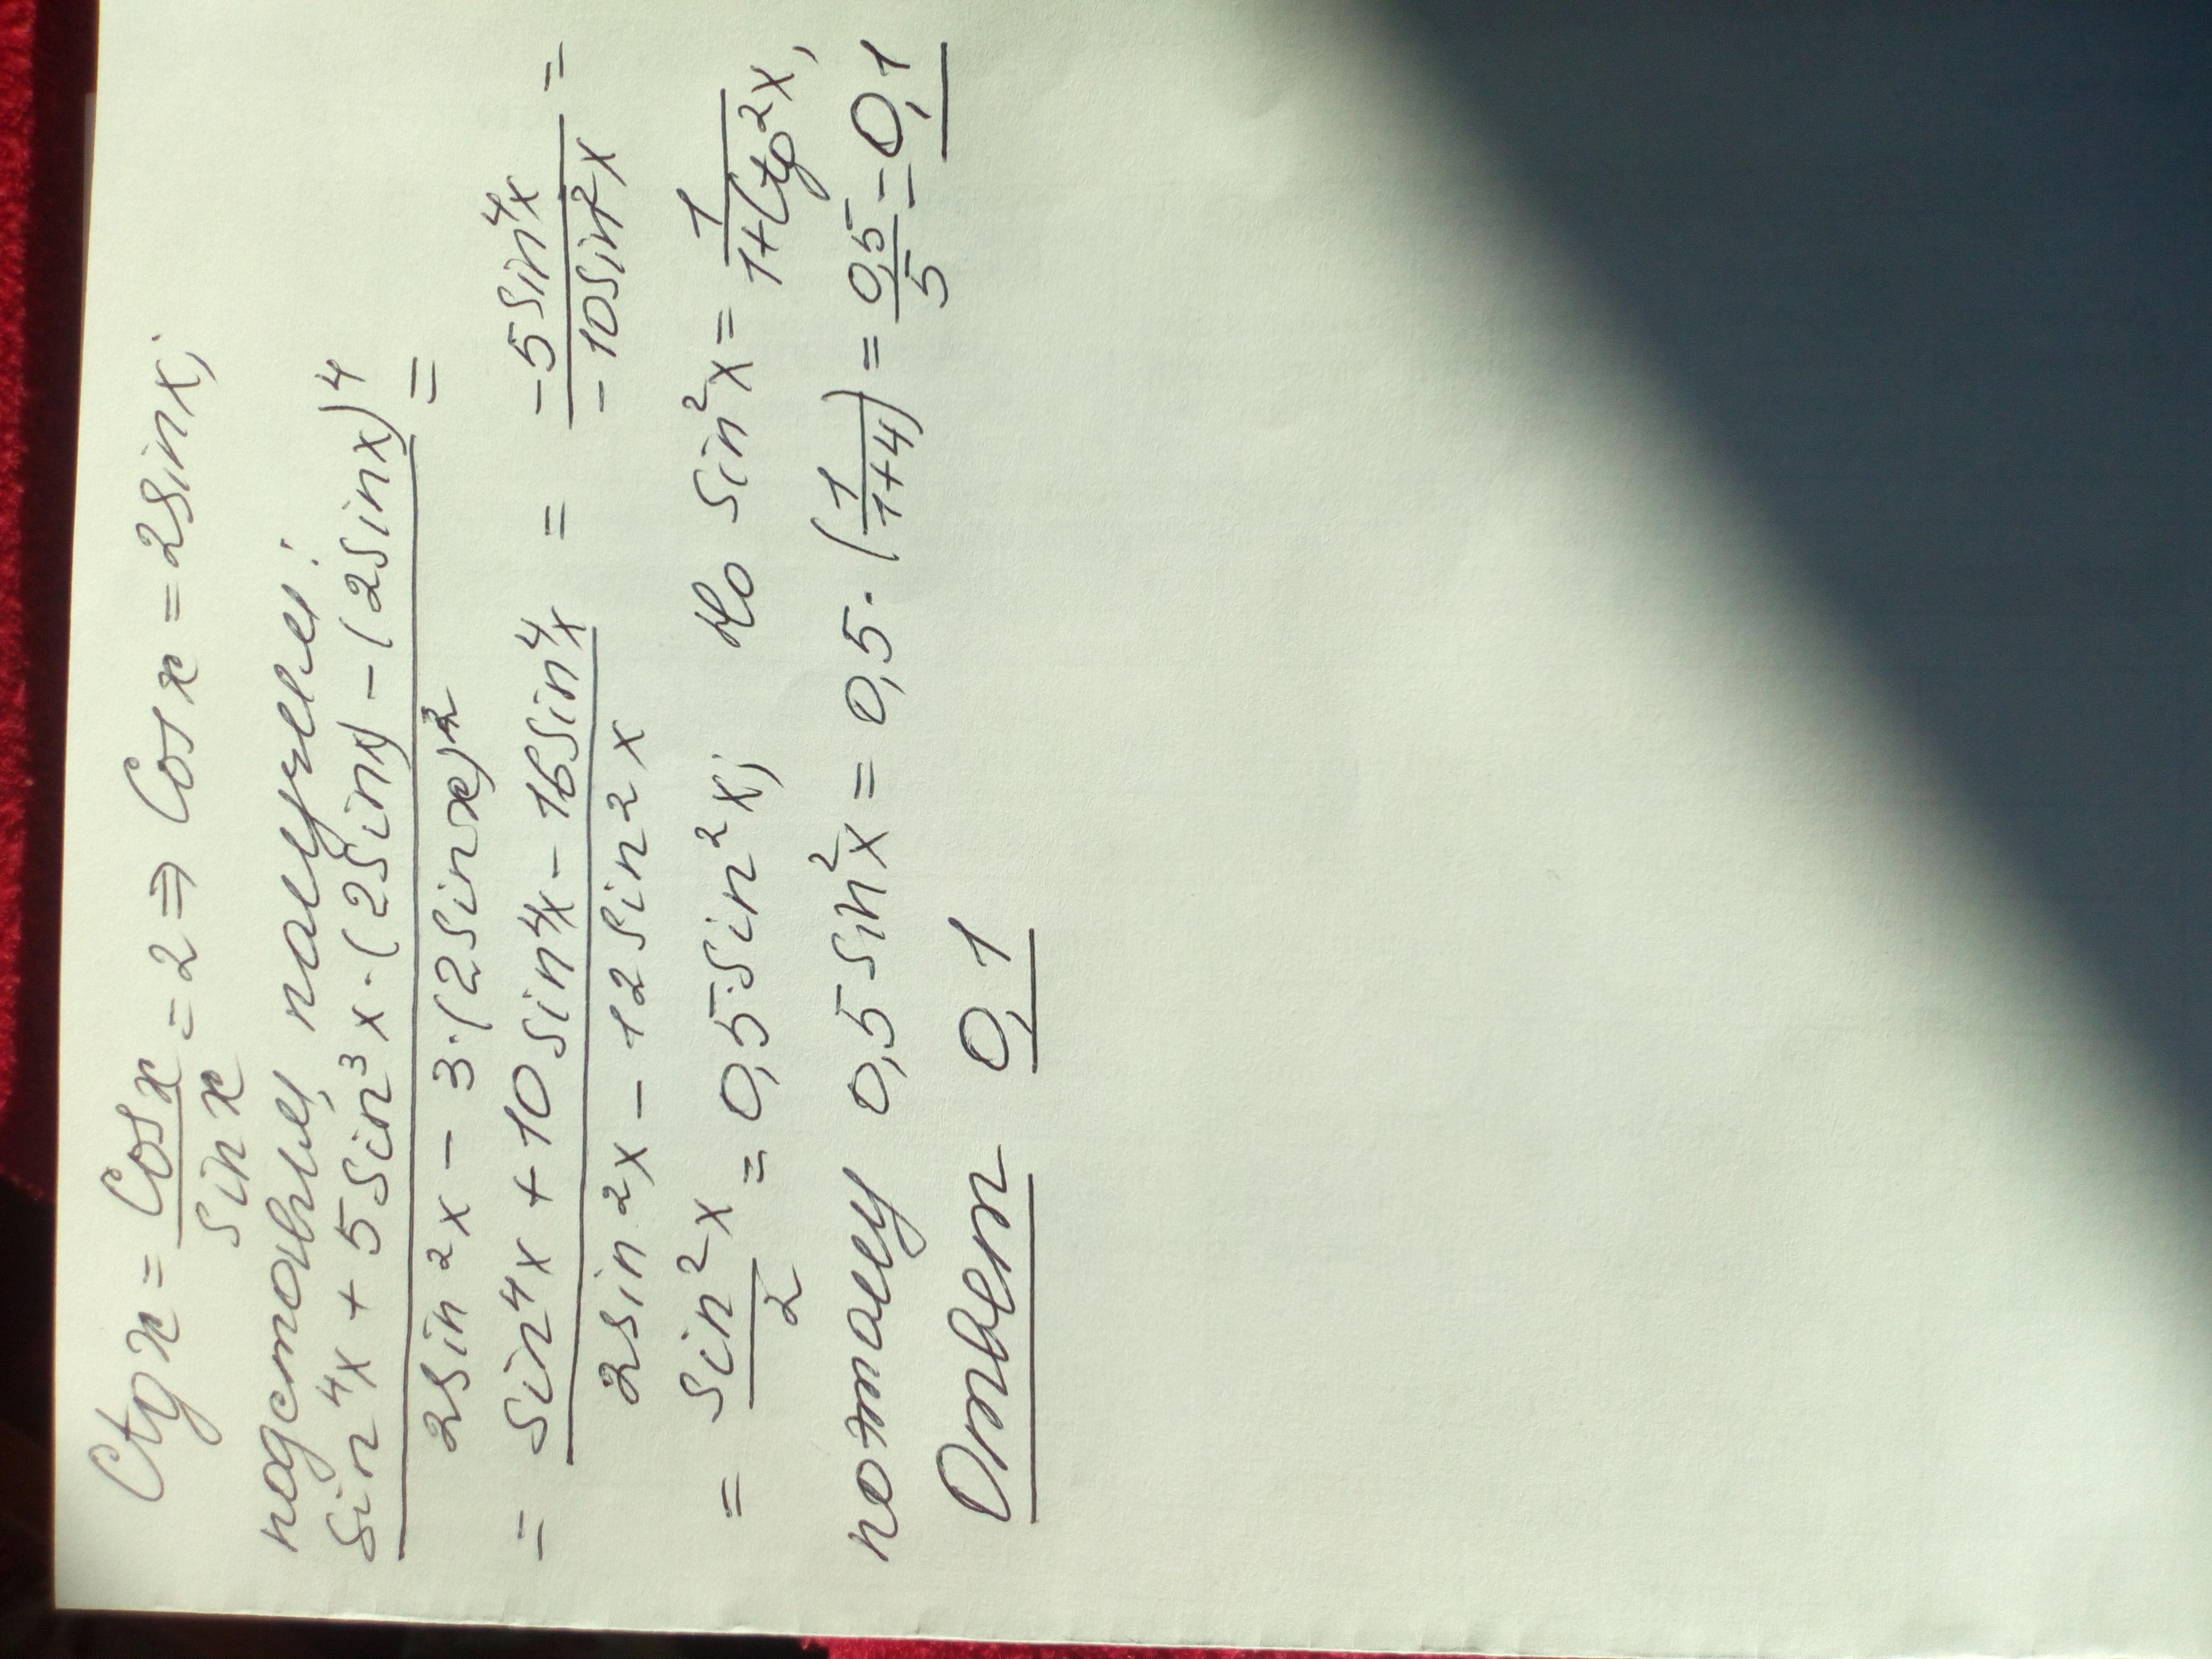 Ctg x = Cos x / sin x = 2 ⇒ Cos x = 2 sin x;
подставим, получим:
(sin⁴x + 5 sin³x · (2 sin x) − (2 sin x)⁴) / (2 sin²x − 3·(2 sin x)²) =
= (sin⁴x + 10 sin⁴x − 16 sin⁴x) / (2 sin²x − 12 sin²x) = (−5 sin⁴x) / (−10 sin²x) =
= sin²x / 2 = 0,5 · sin²x; Но sin²x = 1 / (1+Ctg²x),
потому 0,5 sin²x = 0,5 · (1 / (1+4)) = 0,5 / 5 = 0,1
Ответ 0,1